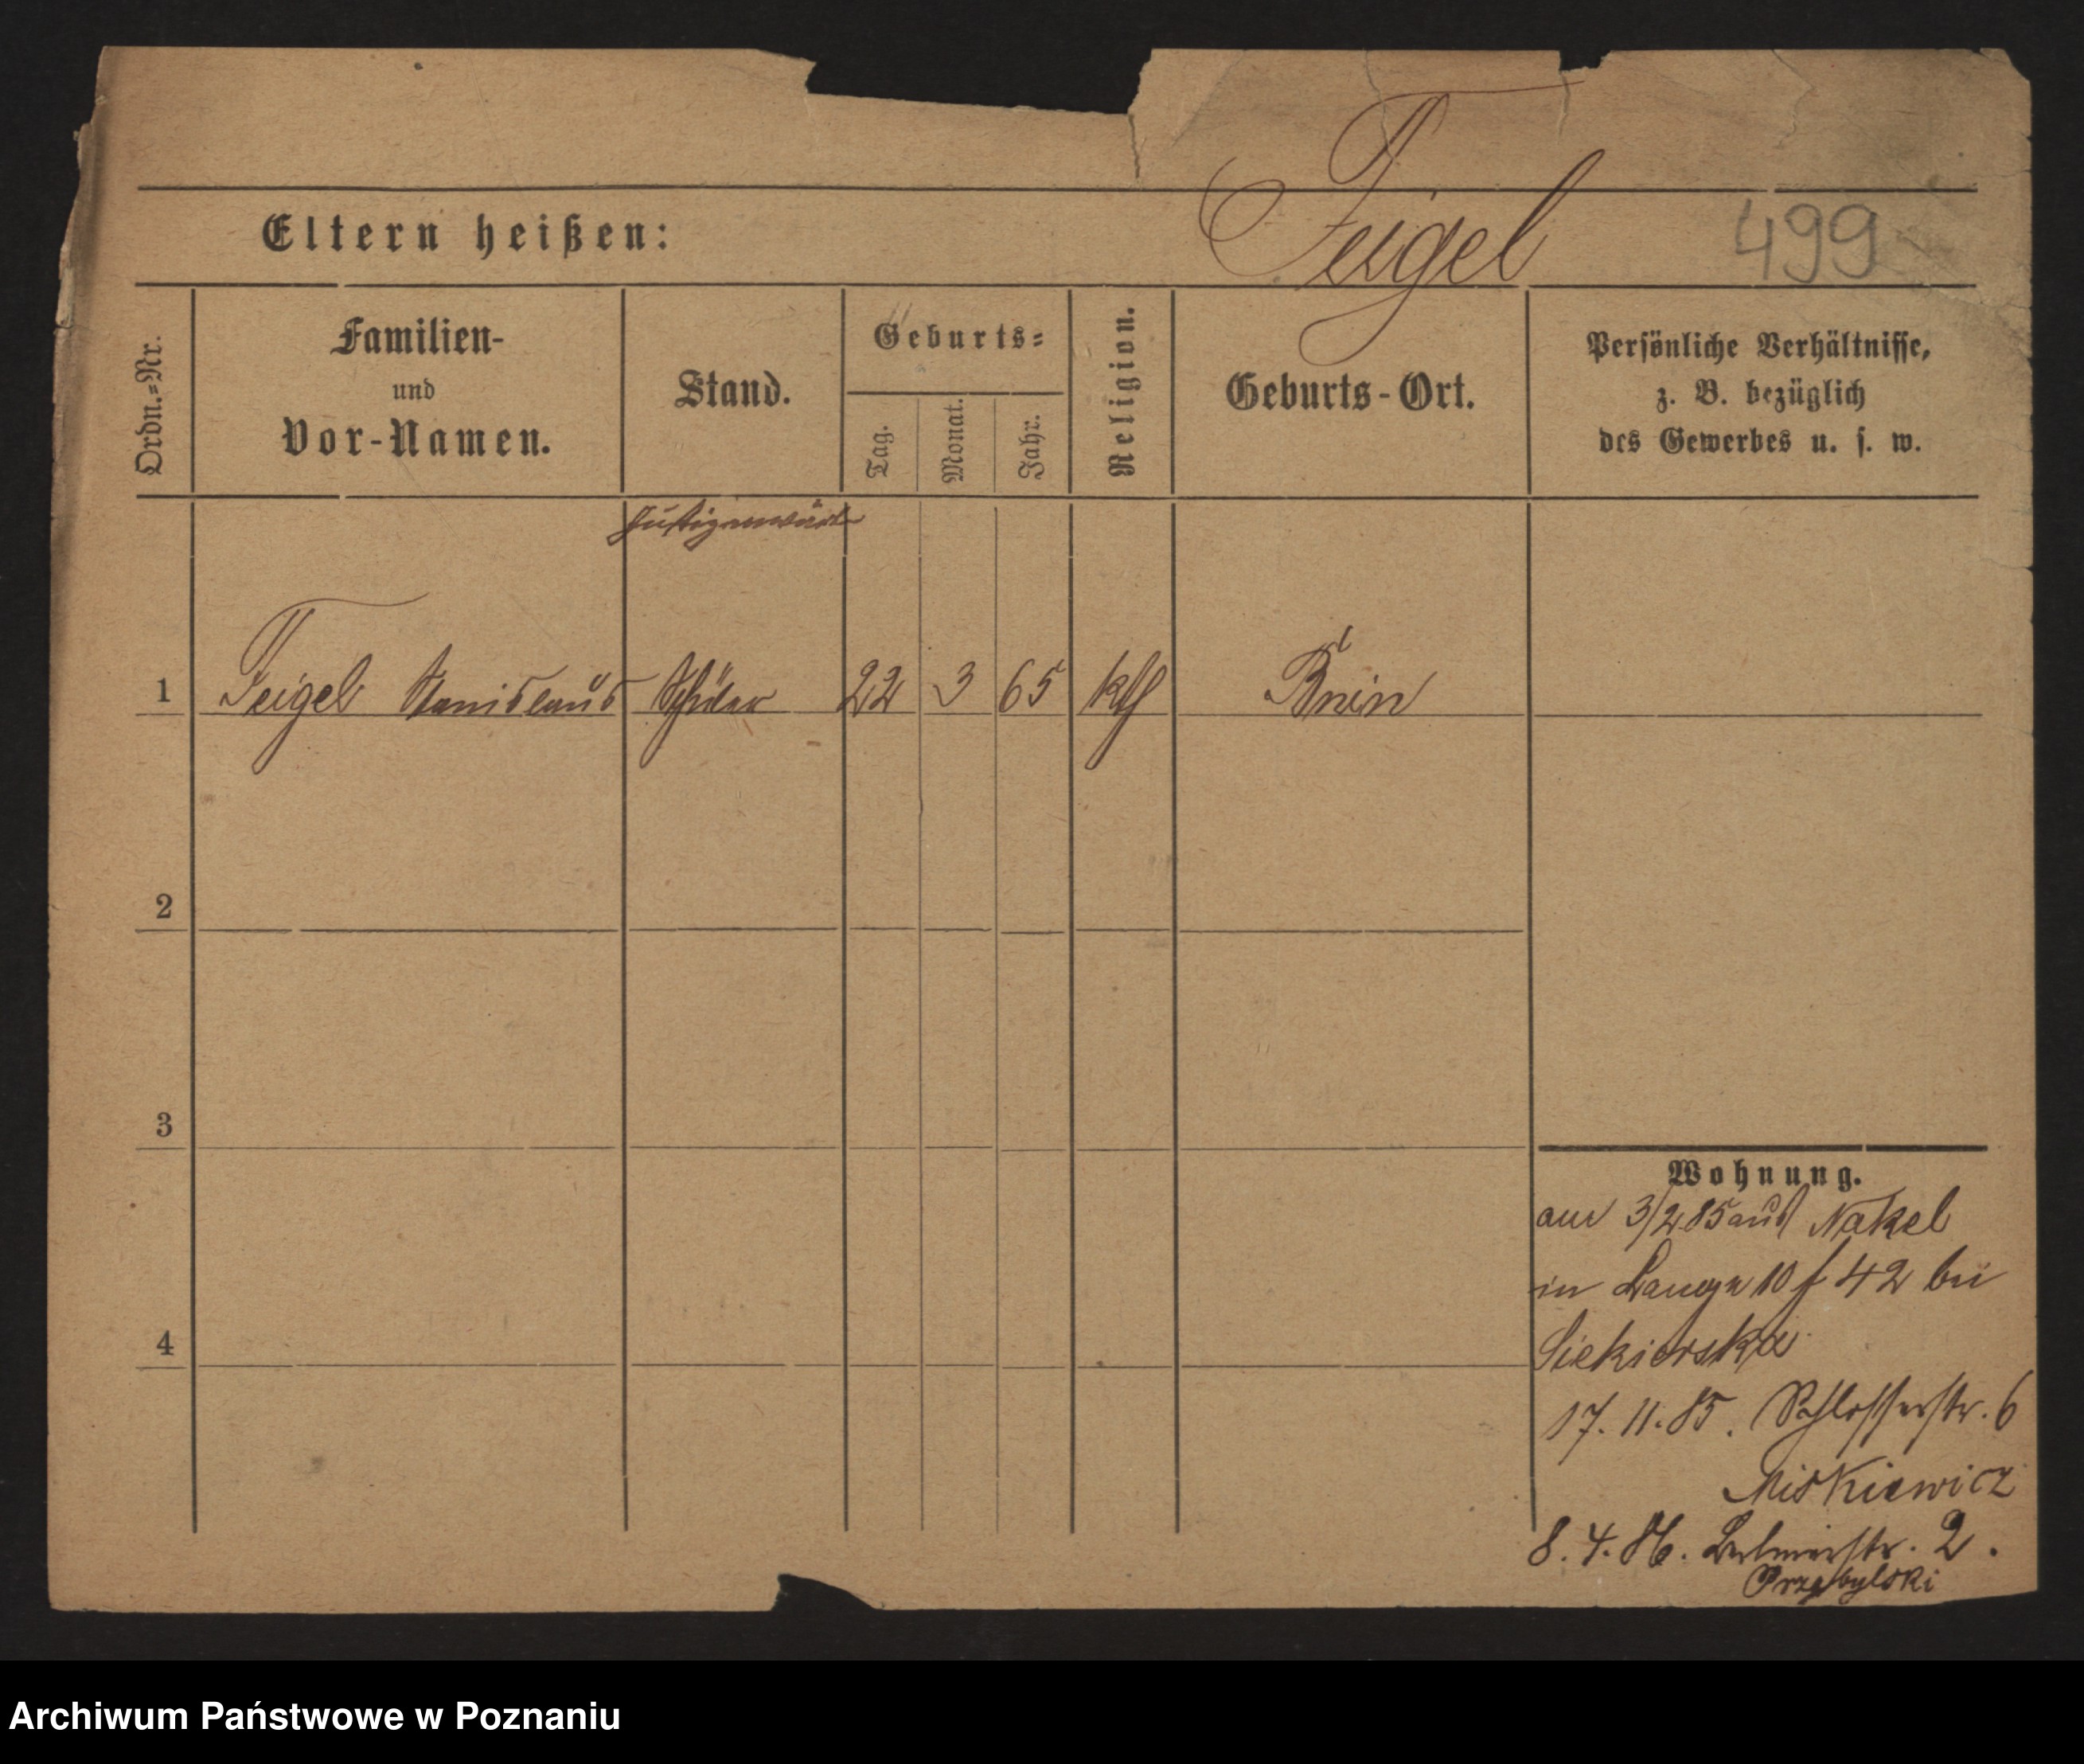 Feigel
499
Eltern heißen:
Ordn.=Nr.
Familien-
und
Vor-Namen.
Stand.
Geburts=
Tag.
Monat.
Jahr.
Religion.
Geburts-Ort.
Persönliche Verhältnisse,
z. B. bezüglich
des Gewerbes u. s. w.
1 Feigel Stanislaus Schüler 22 3 65 kth Bnin
2
3
4
Wohnung.
am 3/2 85 aus Nakel
in 10 f 42 bei
Siekierska
17. 11. 85. Schlosserstr. 6
Miskiewicz
8. 4. 86. 2.
Przybylski
Archiwum Państwowe w Poznaniu